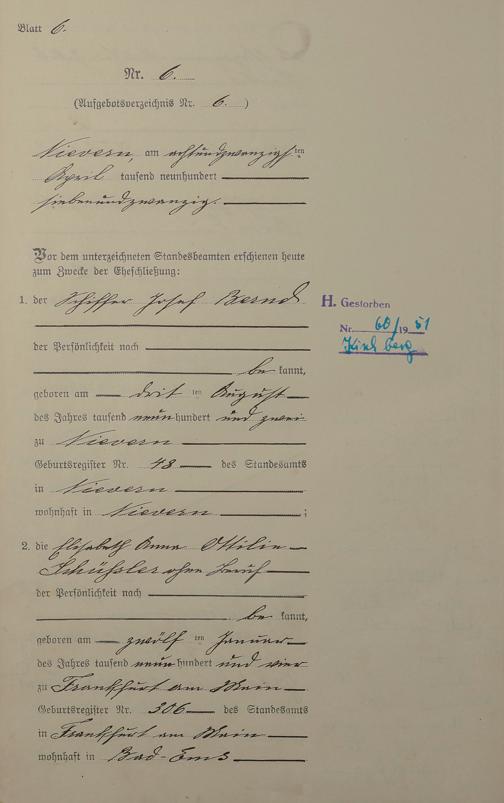 Blatt 6.
Nr. 6.
(Aufgebotsverzeichnis Nr. 6.)
Nievern, am achtundzwanzigsten
April tausend neunhundert
siebenundzwanzig.
Vor dem unterzeichneten Standesbeamten erschienen heute
zum Zwecke der Eheschließung:
1. der Schiffer Josef Bernd
H. Gestorben
Nr. 60/1951
Kirchberg
der Persönlichkeit nach
be kannt,
geboren am dritten August
des Jahres tausend neunhundert und zwei
zu Nievern
Geburtsregister Nr. 48 des Standesamts
in Nievern
wohnhaft in Nievern ;
2. die Elisabeth Anna Ottilie
Schüssler ohne Beruf
der Persönlichkeit nach
be kannt,
geboren am zwölf ten Januar
des Jahres tausend neunhundert und vier
zu Frankfurt am Main
Geburtsregister Nr. 306 des Standesamts
in Frankfurt am Main
wohnhaft in Bad-Ems